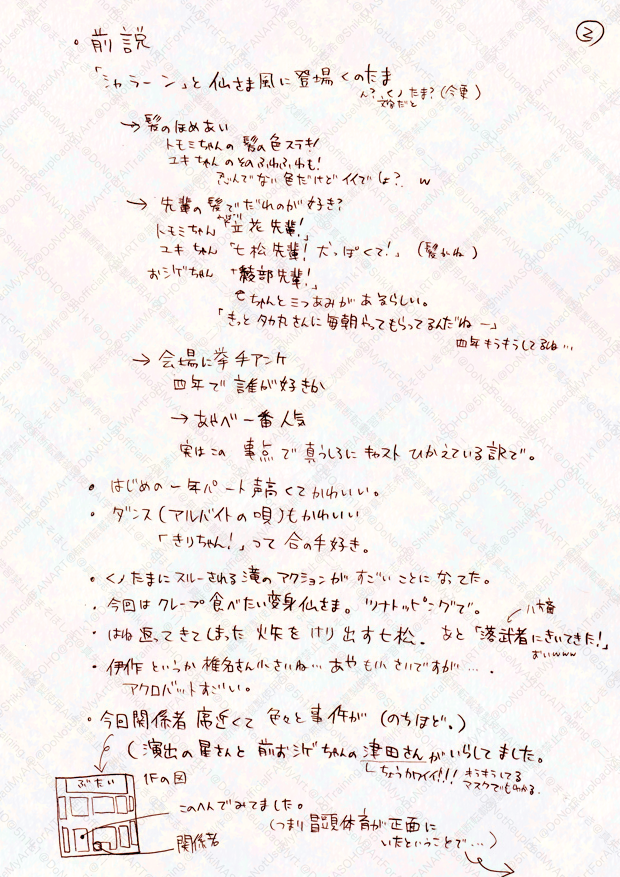 ③
・前説
「シャラーン」と仙さま風に登場くのたま
ん?くノたま?(今更)
文句だと
→髪のほめあい
トモミちゃんの髪の色ステキ!
ユキちゃんのそのふわふわも!
忍んでない色だけどイイでしょ?w
→先輩の髪でだれのが好き?
トモミちゃん「立花先輩!」
ユキちゃん「七松先輩!犬っぽくて!」(髪かね)
おシゲちゃん「綾部先輩!」
ちゃんとミつあみがあるらしい。
「きっとタカ丸さんに毎朝やってもらってるんだねー」
四年キラキラしてるしね…
→会場に挙手アンケ
四年で誰が好きか
→あやべ一番人気
実はこの事点で真うしろにキャストひかえている訳で。
・はじめの一年パート声高くてかわいい。
・ダンス(アルバイトの唄)もかわいい
「きりちゃん!」って合の手好き。
・くノたまにスルーされる滝のアクションがすごいことになってた。
・今回はクレープ食べたい変身仙さま。ツナトッピングで。
・はね返ってきてしまった火矢をけり出す七松。あと「落武者にきいてきた!」
おいwww
・伊作というか椎名さん小さいね…あやも小さいですが…。
アクロバットすごいしい。
・今日関係者席近くて色々と事件が(のちほど。)
(演出の星さんと前おシゲちゃんの津田さんがいらしてました。
ちょうかワイイ!!キラキラしてる
マスクでもわかる。
ぶたい
1Fの図
このへんでみてました。
(つまり冒頭体育が正面に
いたということで…)
関係者